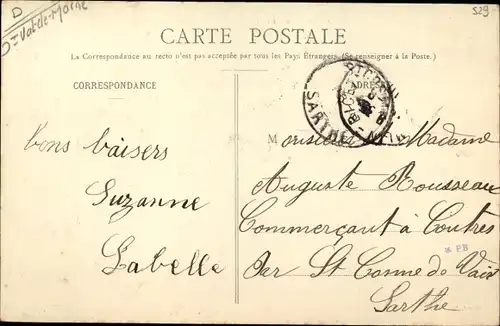 D
Dt Val-de-Marne
529
CARTE POSTALE
La Correspondance au recto n'est pas acceptée par tous les Pays Étrangers. (Se renseigner à la Poste.)
CORRESPONDANCE
ADRES
SARTHE
bons baisers
Suzanne
Labelle
M
Monsieur Madame
Auguste Rousseau
Commerçant à Contres
Par St Cosme de Vair
Sarthe
* PB